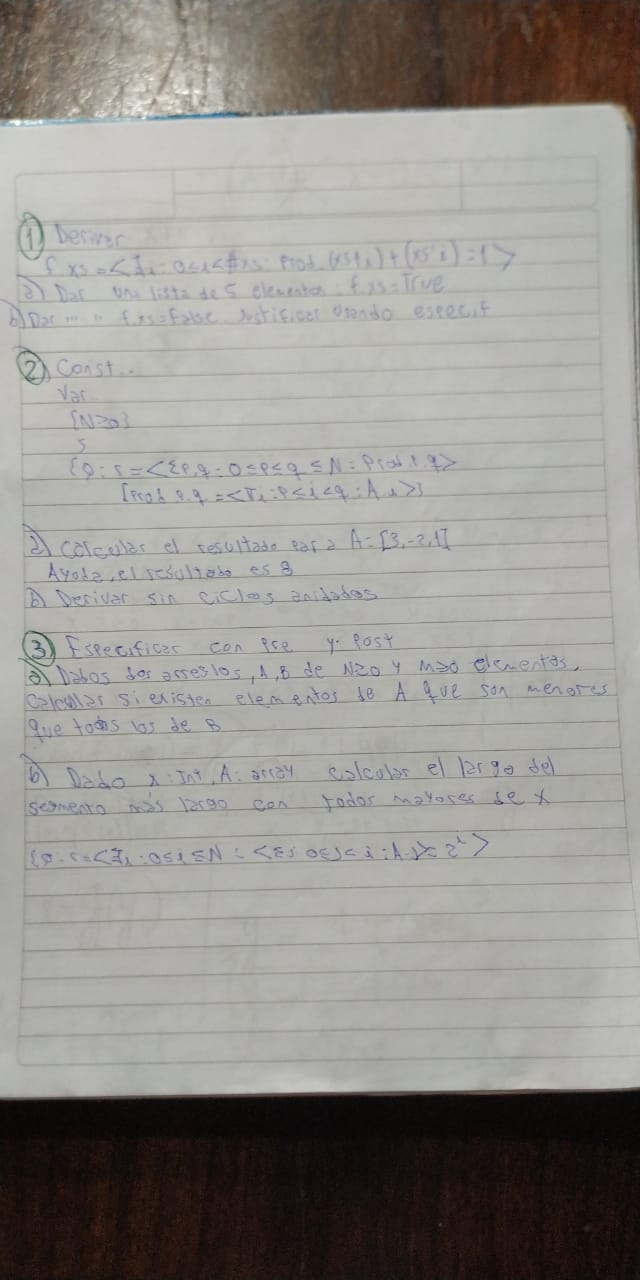 ① Derivar
f xs = <∃i : 0≤i<#xs : Prod.(xs↑i) + (xs.i) = 1>
a) Dar una lista de 5 elementos. f.xs=True
b) Dar " " " f.xs=False Justificar usando especif
② Const..
Var
{N≥0}
S
{Q: r = <Σp,q : 0≤p≤q≤N : Prod.p.q>
[Prod p.q = <π i : p≤i<q : A.i>]
a) Calcular el resultado para A=[3,-2,1]
Ayuda, el resultado es 8
b) Derivar sin ciclos anidados
③ Especificar con pre y post
a) Dados dos arreglos, A, B de N≥0 y M≥0 elementos.
Calcular si existen elementos de A que son menores
que todos los de B
b) Dado x: Int, A: array calcular el largo del
segmento más largo con todos mayores de x
{Q: r=<∃i : 0≤i≤N : <Σj 0≤j<i : A.j>= 2^i>